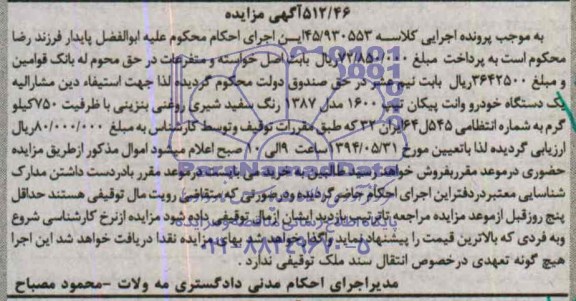 ۵۱۲/۴۶آگهی مزایده
به موجب پرونده اجرایی کلاسه ۴۵/۹۳۰۵۵۳ایـن اجرای احکام محکوم علیه ابوالفضل پایدار فرزند رضا
محکوم است به پرداخت مبلغ ۷۲/۸۵۰/۰۰۰ریال بابت اصل خواسته و متفرعات در حق محوم له بانک قوامین
و مبلغ ۳۶۴۲۵۰۰ریال بابت نیم عشر در حق صندوق دولت محکوم گردیده لذا جهت استیفاء دین مشارالیه
یک دستگاه خودرو وانت پیکان تیپ ۱۶۰۰ مدل ۱۳۸۷ رنگ سفید شیری روغنی بنزینی با ظرفیت ۷۵۰کیلو
گرم به شماره انتظامی ۵۴۵ل۶۴ایران ۳۲ که طبق مقررات توقیف وتوسط کارشناس به مبلغ ۸۰/۰۰۰/۰۰۰ریال
ارزیابی گردیده لذا باتعیین مورخ ۱۳۹۴/۰۵/۳۱ساعت ۹الی ۱۰ صبح اعلام میشود اموال مذکور ازطریق مزایده
حضوری درموعد مقرربفروش خواهد رسید طالبین به خرید می بایست درموعد مقرر بادردست داشتن مدارک
شناسایی معتبردردفتراین اجرای احکام حاضر گردیده ودرصورتی که متقاضی رویت مال توقیفی هستند حداقل
پنج روزقبل ازموعد مزایده مراجعه تاترتیب بازدید ایشان ازمال توقیفی داده شود مزایده ازنرخ کارشناسی شروع
وبه فردی که بالاترین قیمت را پیشنهاد نماید واگذار خواهد شد بهای مزایده نقدا دریافت خواهد شد این اجرا
هیچ گونه تعهدی درخصوص انتقال سند ملک توقیفی ندارد .
مدیراجرای احکام مدنی دادگستری مه ولات -محمود مصباح